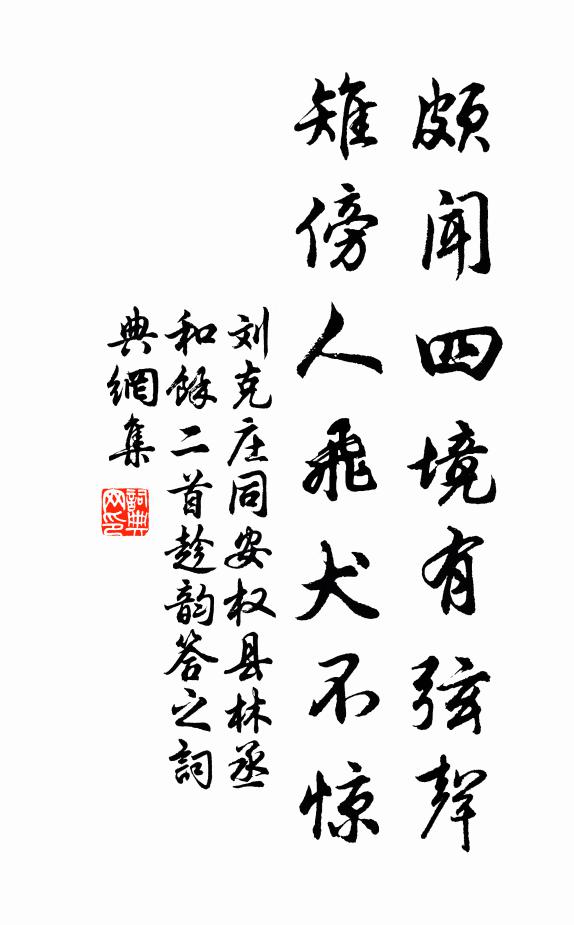 颇闻四境有弦聲
雉傍人飛犬不惊
刘克庄同安权县林丞
和餘二首趁韵答之詞
典網集
詞典网印